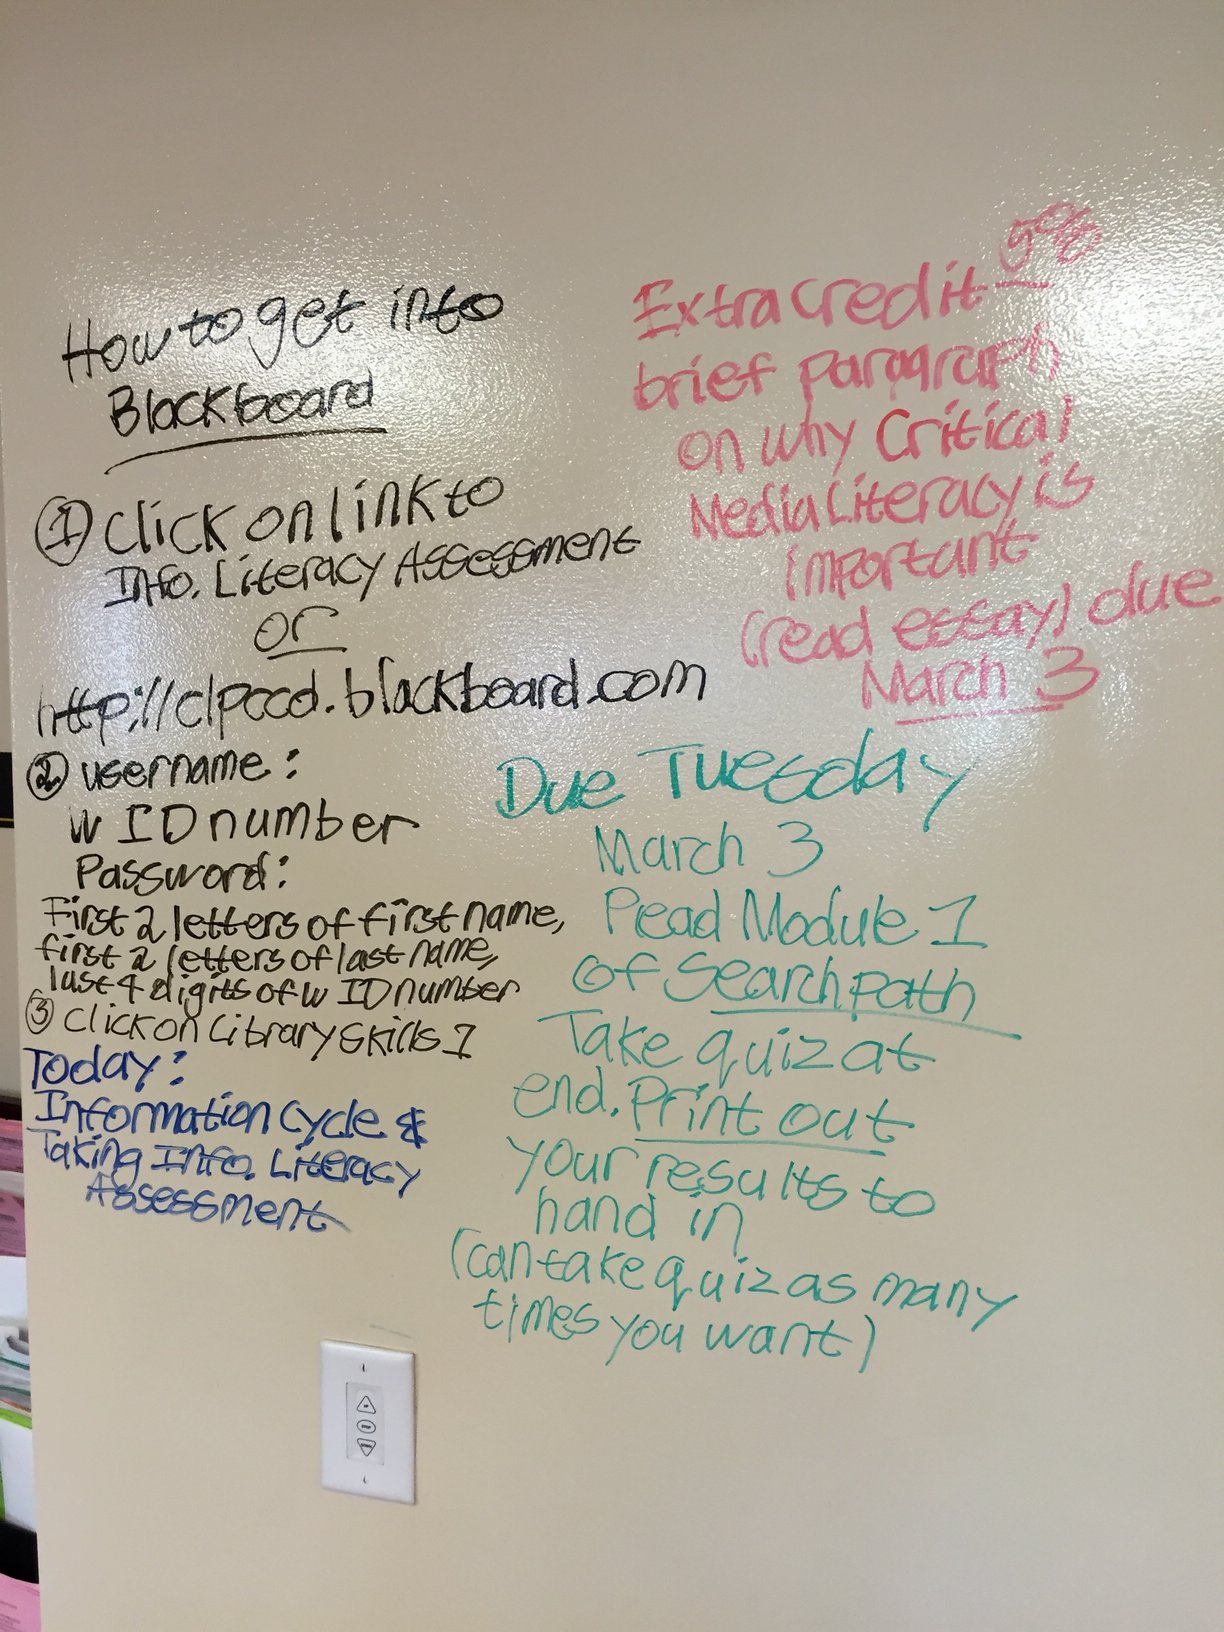 How to get into
Blackboard
① Click on link to
Info. Literacy Assessment
or
http://clpccd.blackboard.com
② username:
W ID number
Password:
First 2 letters of first name,
first 2 letters of last name,
last 4 digits of W ID number
③ Click on Library Skills 1
Today:
Information Cycle &
Taking Info. Literacy
Assessment
5%
Extra credit -
brief paragraph
on why Critical
Media Literacy is
important
(read essay) due
March 3
Due Tuesday
March 3
Read Module 1
of Searchpath
Take quiz at
end. Print out
your results to
hand in
(can take quiz as many
times you want)